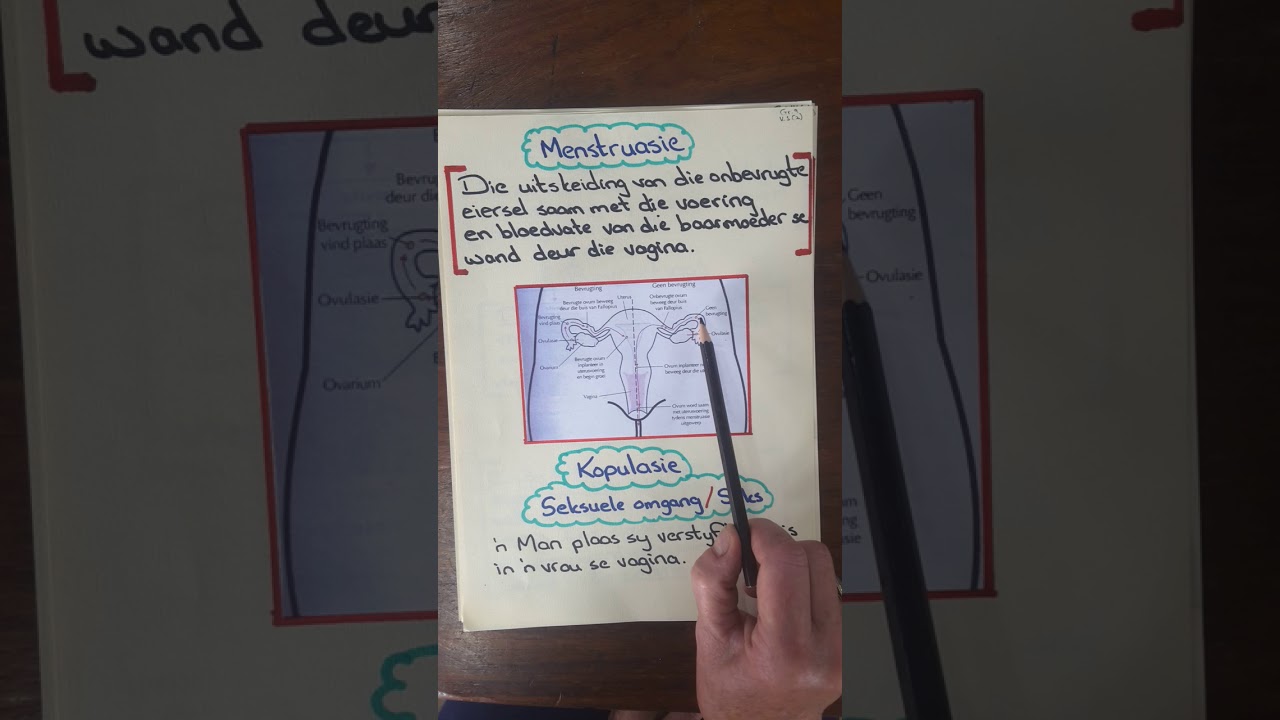 Menstruasie
Die uitskeiding van die onbevrugte
eiersel saam met die voering
en bloedvate van die baarmoeder se
wand deur die vagina.
Bevrugting
Geen bevrugting
Bevrugte ovum beweeg
deur die buis van Fallopius
Uterus
Onbevrugte ovum
beweeg deur buis
van Fallopius
Bevrugting
vind plaas
Geen
bevrugting
Ovulasie
Ovulasie
Ovarium
Bevrugte ovum
inplanteer in
uterusvoering
en begin groei
Ovum
beweeg deur die
Vagina
Ovum word saam
met uterusvoering
tydens menstruasie
uitgewerp
Kopulasie
Seksuele omgang/
'n Man plaas sy
in 'n vrou se vagina.
wand deur
Bevru
deur die
Bevrugting
vind plaas
Ovulasie
Ovarium
Geen
bevrugting
Ovulasie